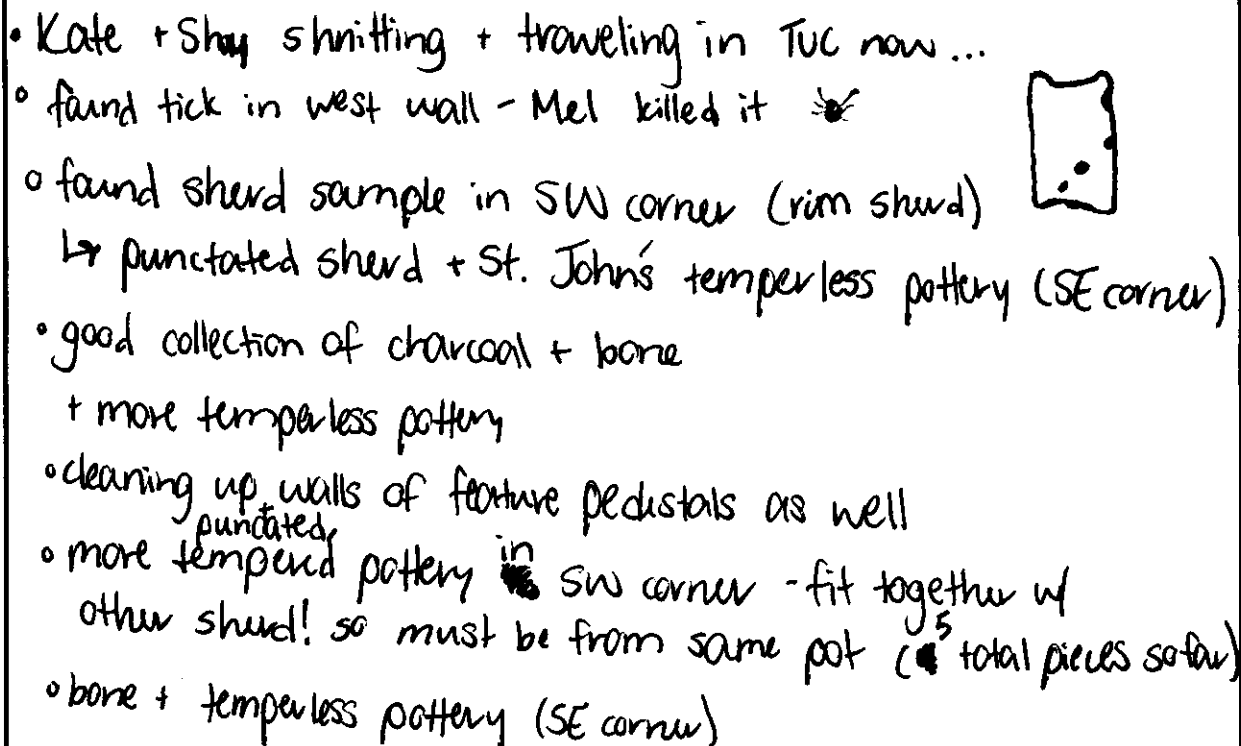 • Kate + Shy shnitting + troweling in TUC now...
• found tick in west wall - Mel killed it
• found sherd sample in SW corner (rim sherd)
↳ punctated sherd + St. John's temperless pottery (SE corner)
• good collection of charcoal + bone
+ more temperless pottery
• cleaning up walls of feature pedistals as well
+ punctated
• more tempered pottery in SW corner - fit together w/
other sherd! so must be from same pot (5 total pieces so far)
• bone + temperless pottery (SE corner)